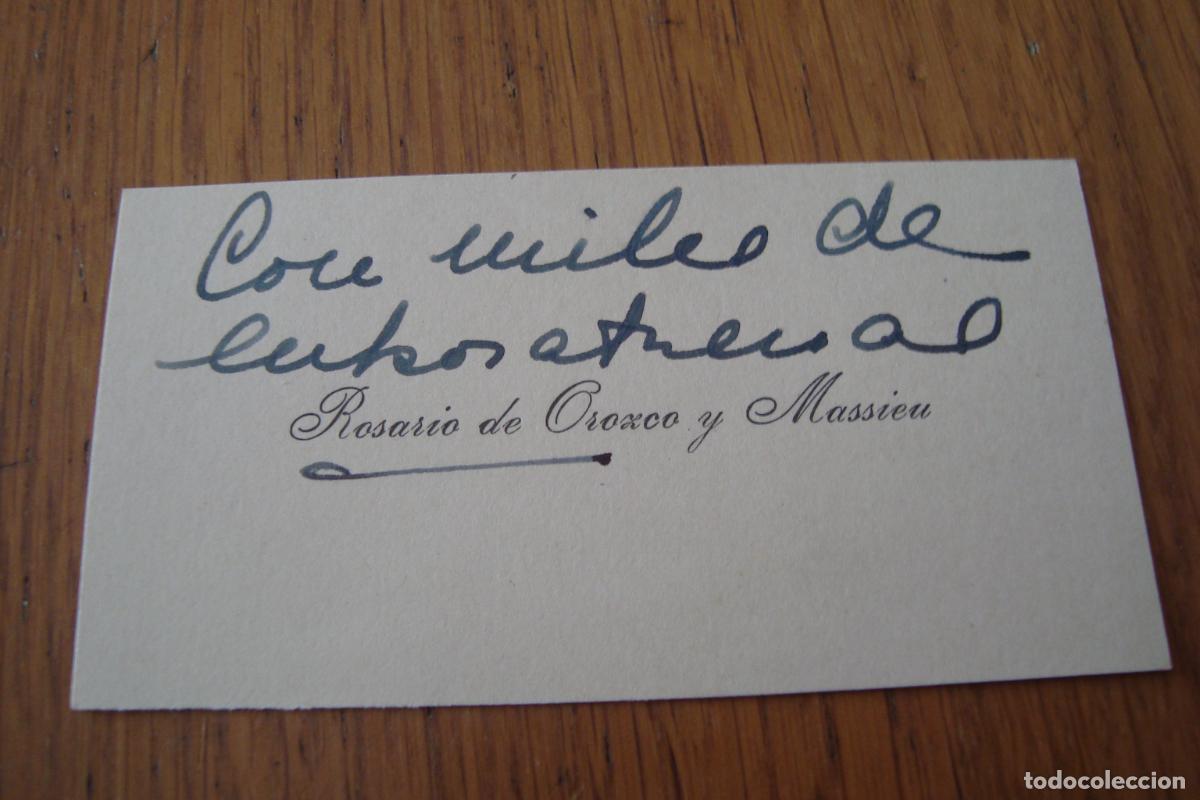 Con miles de
enhorabuenas
Rosario de Orozco y Massieu
todocoleccion